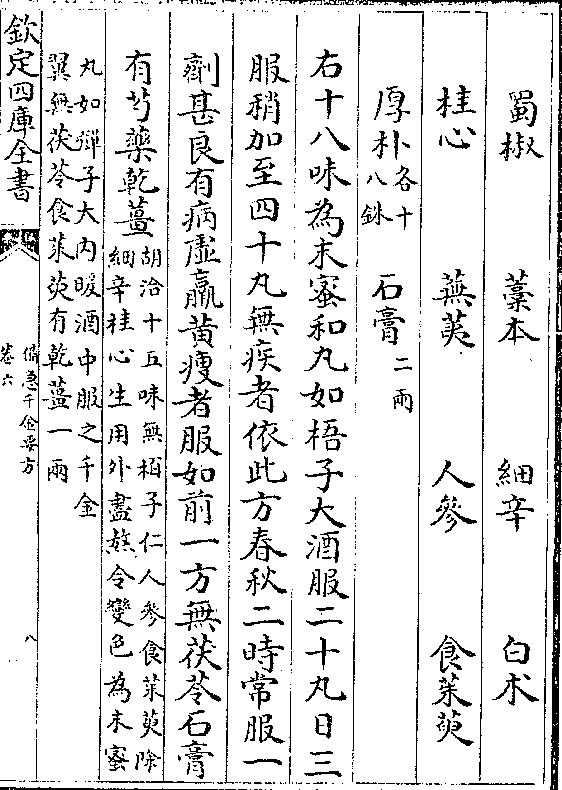 蜀椒 藁本 細辛 白术
桂心 蕪荑 人參 食茱萸
厚朴各十八銖 石膏二兩
右十八味為末蜜和丸如梧子大酒服二十丸日三
服稍加至四十丸無疾者依此方春秋二時常服一
劑甚良有病虛羸黃瘦者服如前一方無茯苓石膏
有芍藥乾薑胡洽十五味無栢子仁人參食茱萸除細辛桂心生用外盡熬令變色為末蜜
丸如彈子大內暖酒中服之千金
翼無茯苓食茱萸有乾薑一兩
欽定四庫全書
備急千金要方
卷六
八